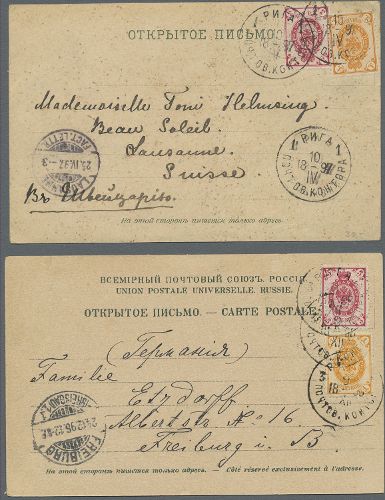 ОТКРЫТОЕ ПИСЬМО.
РИГА
Mademoiselle Toni Helmsing
Beau Soleil.
Lausanne.
Suisse.
Въ Швейцарію.
РИГА
10
IV
ПОЧТОВ. КОНТОРА
На этой сторонѣ пишется только адресъ.
ВСЕМІРНЫЙ ПОЧТОВЫЙ СОЮЗЪ. РОССІЯ.
UNION POSTALE UNIVERSELLE. RUSSIE.
ОТКРЫТОЕ ПИСЬМО. — CARTE POSTALE.
(Германія)
Familie
Etzdorff
Albertstr № 16.
Freiburg i. B.
FREIBURG
На этой сторонѣ пишется только адресъ. — Côté réservé exclusivement à l'adresse.